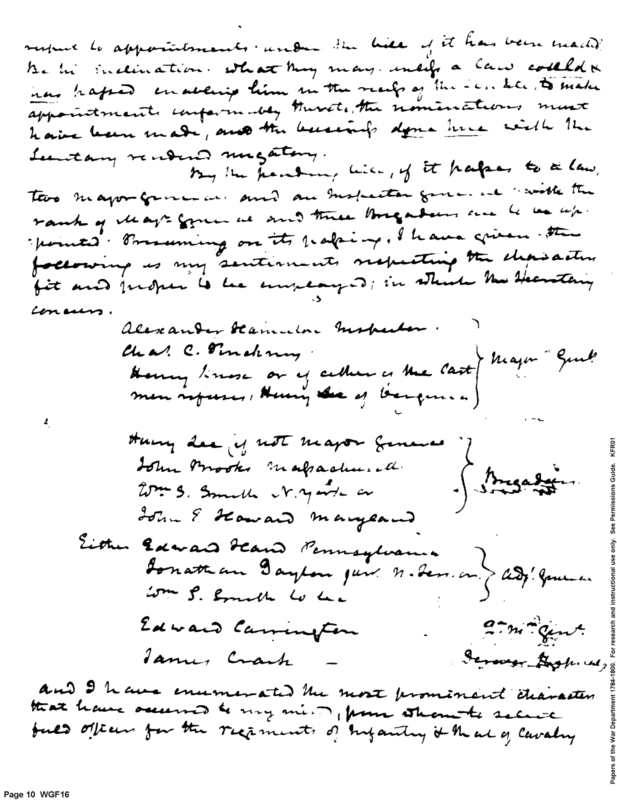 respect to appointments under the bill if it has been enacted
be his inclination what they may. unless a law could &
has passed enabling him in the recess of the to make
appointments conformably thereto, the nominations must
have been made, and the business done here with the
Secretary rendered nugatory.
By the pending bill, if it passes to a law,
two Major Generals and an Inspector general with the
rank of Majr General and three Brigadiers are to be ap-
-pointed. Presuming on its passing, I have given the
following as my sentiments respecting the characters
fit and proper to be employed; in which the Secretary
concurs.
Alexander Hamilton Inspector.
Chas. C. Pinckney.
Henry Knox or if either of the last
men refuses, Henry Lee of Virginia
Major Genls
Henry Lee if not Major General
John Brooks Massachusetts
Wm. S. Smith N. York or
John E. Howard Maryland
Brigadiers
Either Edward Hand Pennsylvania
Jonathan Dayton junr. N. Jersey or
Wm. S. Smith to be
Adjt. General
Edward Carrington Qr. Mr. Genl.
James Craik — Director Hospital
and I have enumerated the most prominent characters
that have occurred to my mind, from whom to select
field officers for the regiments of Infantry & that of Cavalry
Page 10 WGF16
Papers of the War Department 1784-1800. For research and instructional use only. See Permissions Guide. KFR01